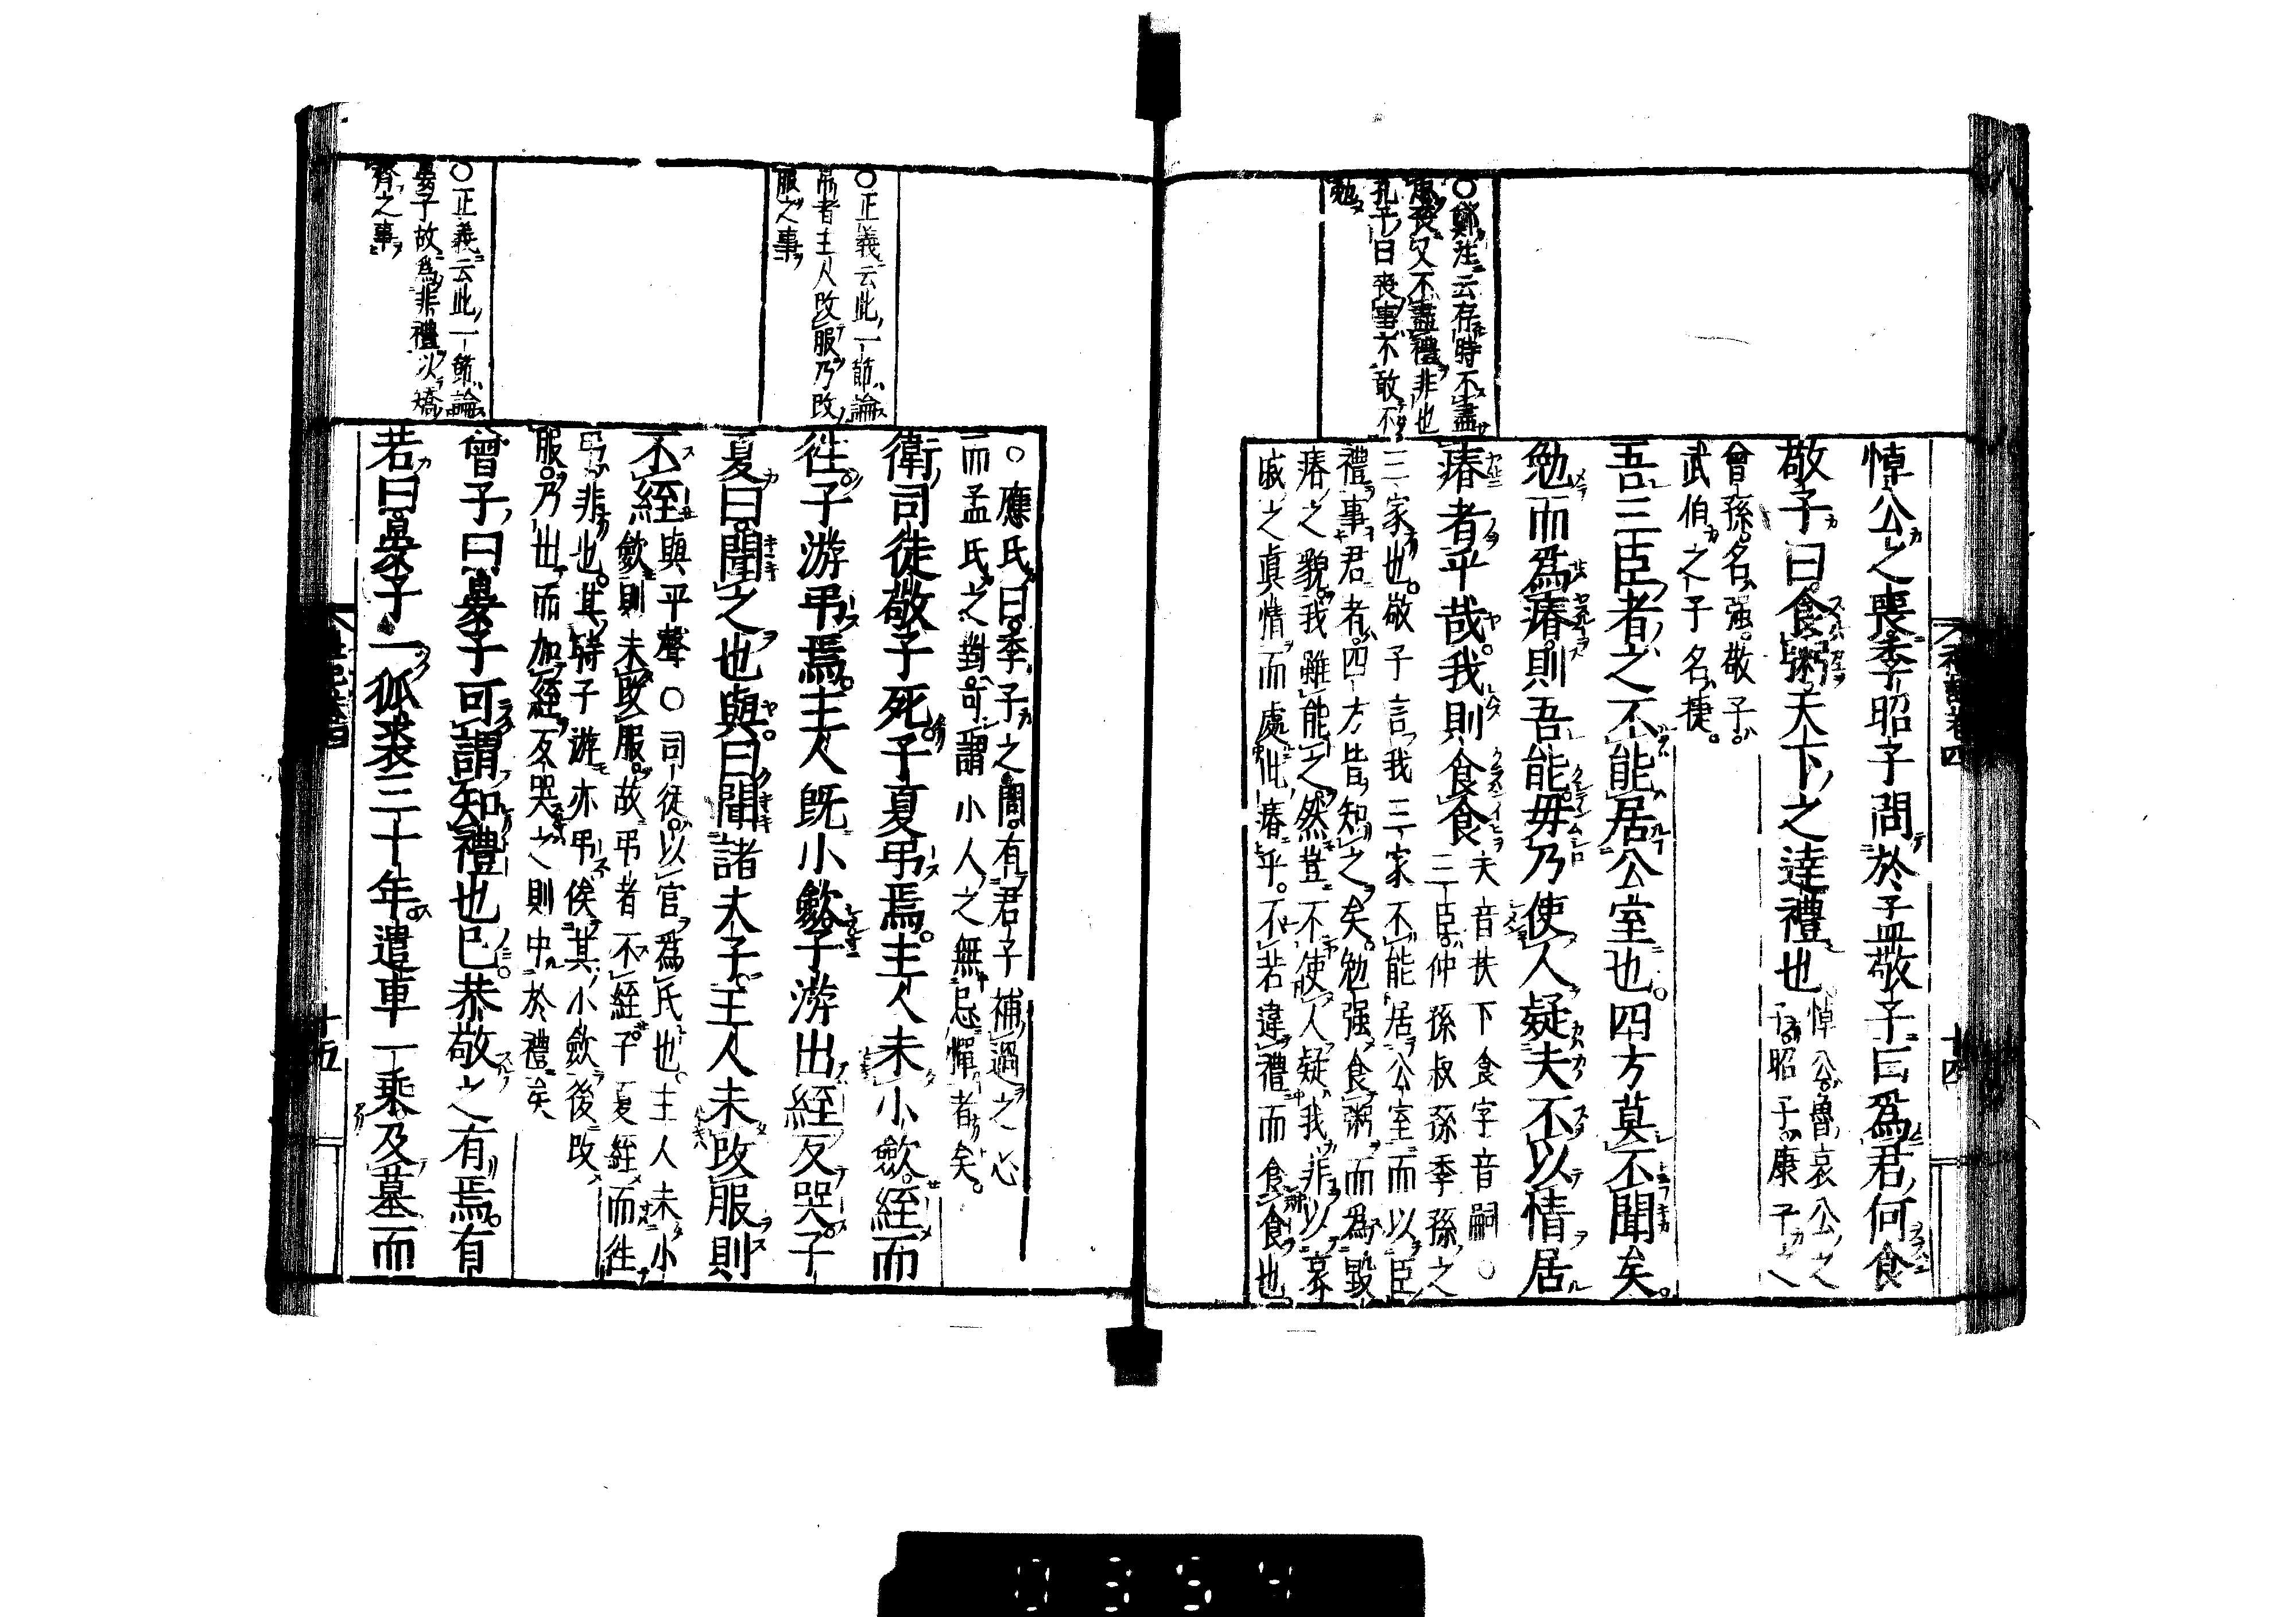 ○鄭注云存時不盡
忠喪又不盡禮非也
孔子曰喪事不敢不
勉
悼公之喪季昭子問於孟敬子曰爲君何食
敬子曰食粥天下之達禮也
悼公魯哀公之
子昭子康子之
曾孫名強敬子
武伯之子名捷
吾三臣者之不能居公室也四方莫不聞矣
勉而爲瘠則吾能毋乃使人疑夫不以情居
瘠者乎哉我則食食
夫音扶下食字音嗣○
三臣仲孫叔孫季孫之
三家也敬子言我三家不能居公室而以臣
禮事君者四方皆知之矣勉强食粥而爲毀
瘠之貌我雖能之然豈不使人疑我非以哀
戚之眞情而處此瘠乎不若違禮而食食也
○應氏曰季子之問有君子補過之心
而孟氏之對可謂小人之無忌憚者矣
○正義云此一節論
吊者主人改服乃改
服之事
衛司徒敬子死子夏弔焉主人未小歛絰而
往子游弔焉主人既小歛子游出絰反哭子
夏曰聞之也與曰聞諸夫子主人未改服則
不絰
與平聲○司徒以官爲氏也主人未小
歛則未改服故弔者不絰子夏絰而往
弔非也其時子游亦弔俟其小歛後改
服乃出而加絰反哭之則中於禮矣
○正義云此一節論
晏子故爲非禮以矯
齊之事
曾子曰晏子可謂知禮也已恭敬之有焉有
若曰晏子一狐裘三十年遣車一乘及墓而
禮記卷四
十四
十五
0354